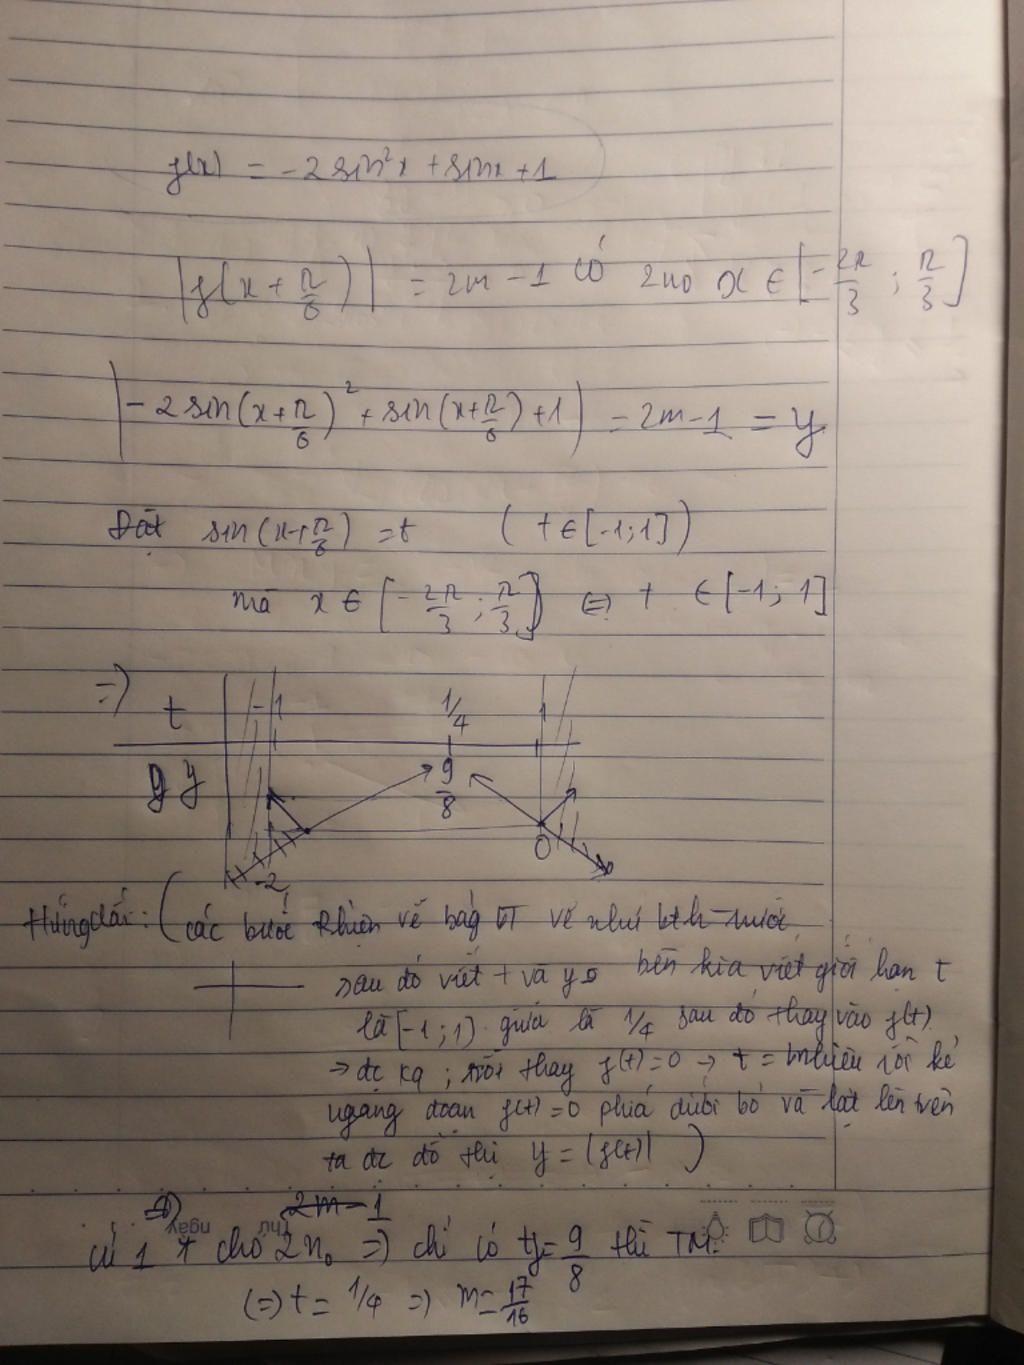 f(x) = -2 sin²x + sinx + 1
|f(x + π/6)| = 2m - 1 có 2no x ∈ [-2π/3 ; π/3]
|-2 sin(x + π/6)² + sin(x + π/6) + 1| = 2m - 1 = y
Đặt sin(x + π/6) = t ( t ∈ [-1; 1])
mà x ∈ [-2π/3 ; π/3] ⇔ t ∈ [-1; 1]
=> t -1 1/4 1
y 9/8
-2 0
các bước khi vẽ bảg BT vẽ như bth trước
sau đó viết t và y bên kia viết giới hạn t
là [-1; 1] giữa là 1/4 sau đó thay vào f(t)
→ đc kq ; rồi thay f(t) = 0 → t = bnhiêu rồi kẻ
ngang đoạn f(t) = 0 phía dưới bỏ và lật lên trên
ta đc đồ thị y = |f(t)| )
2m - 1
Thứ Ngày
cứ 1 t cho 2no => chỉ có y = 9/8 thì TM.
(=) t = 1/4 => m = 17/16